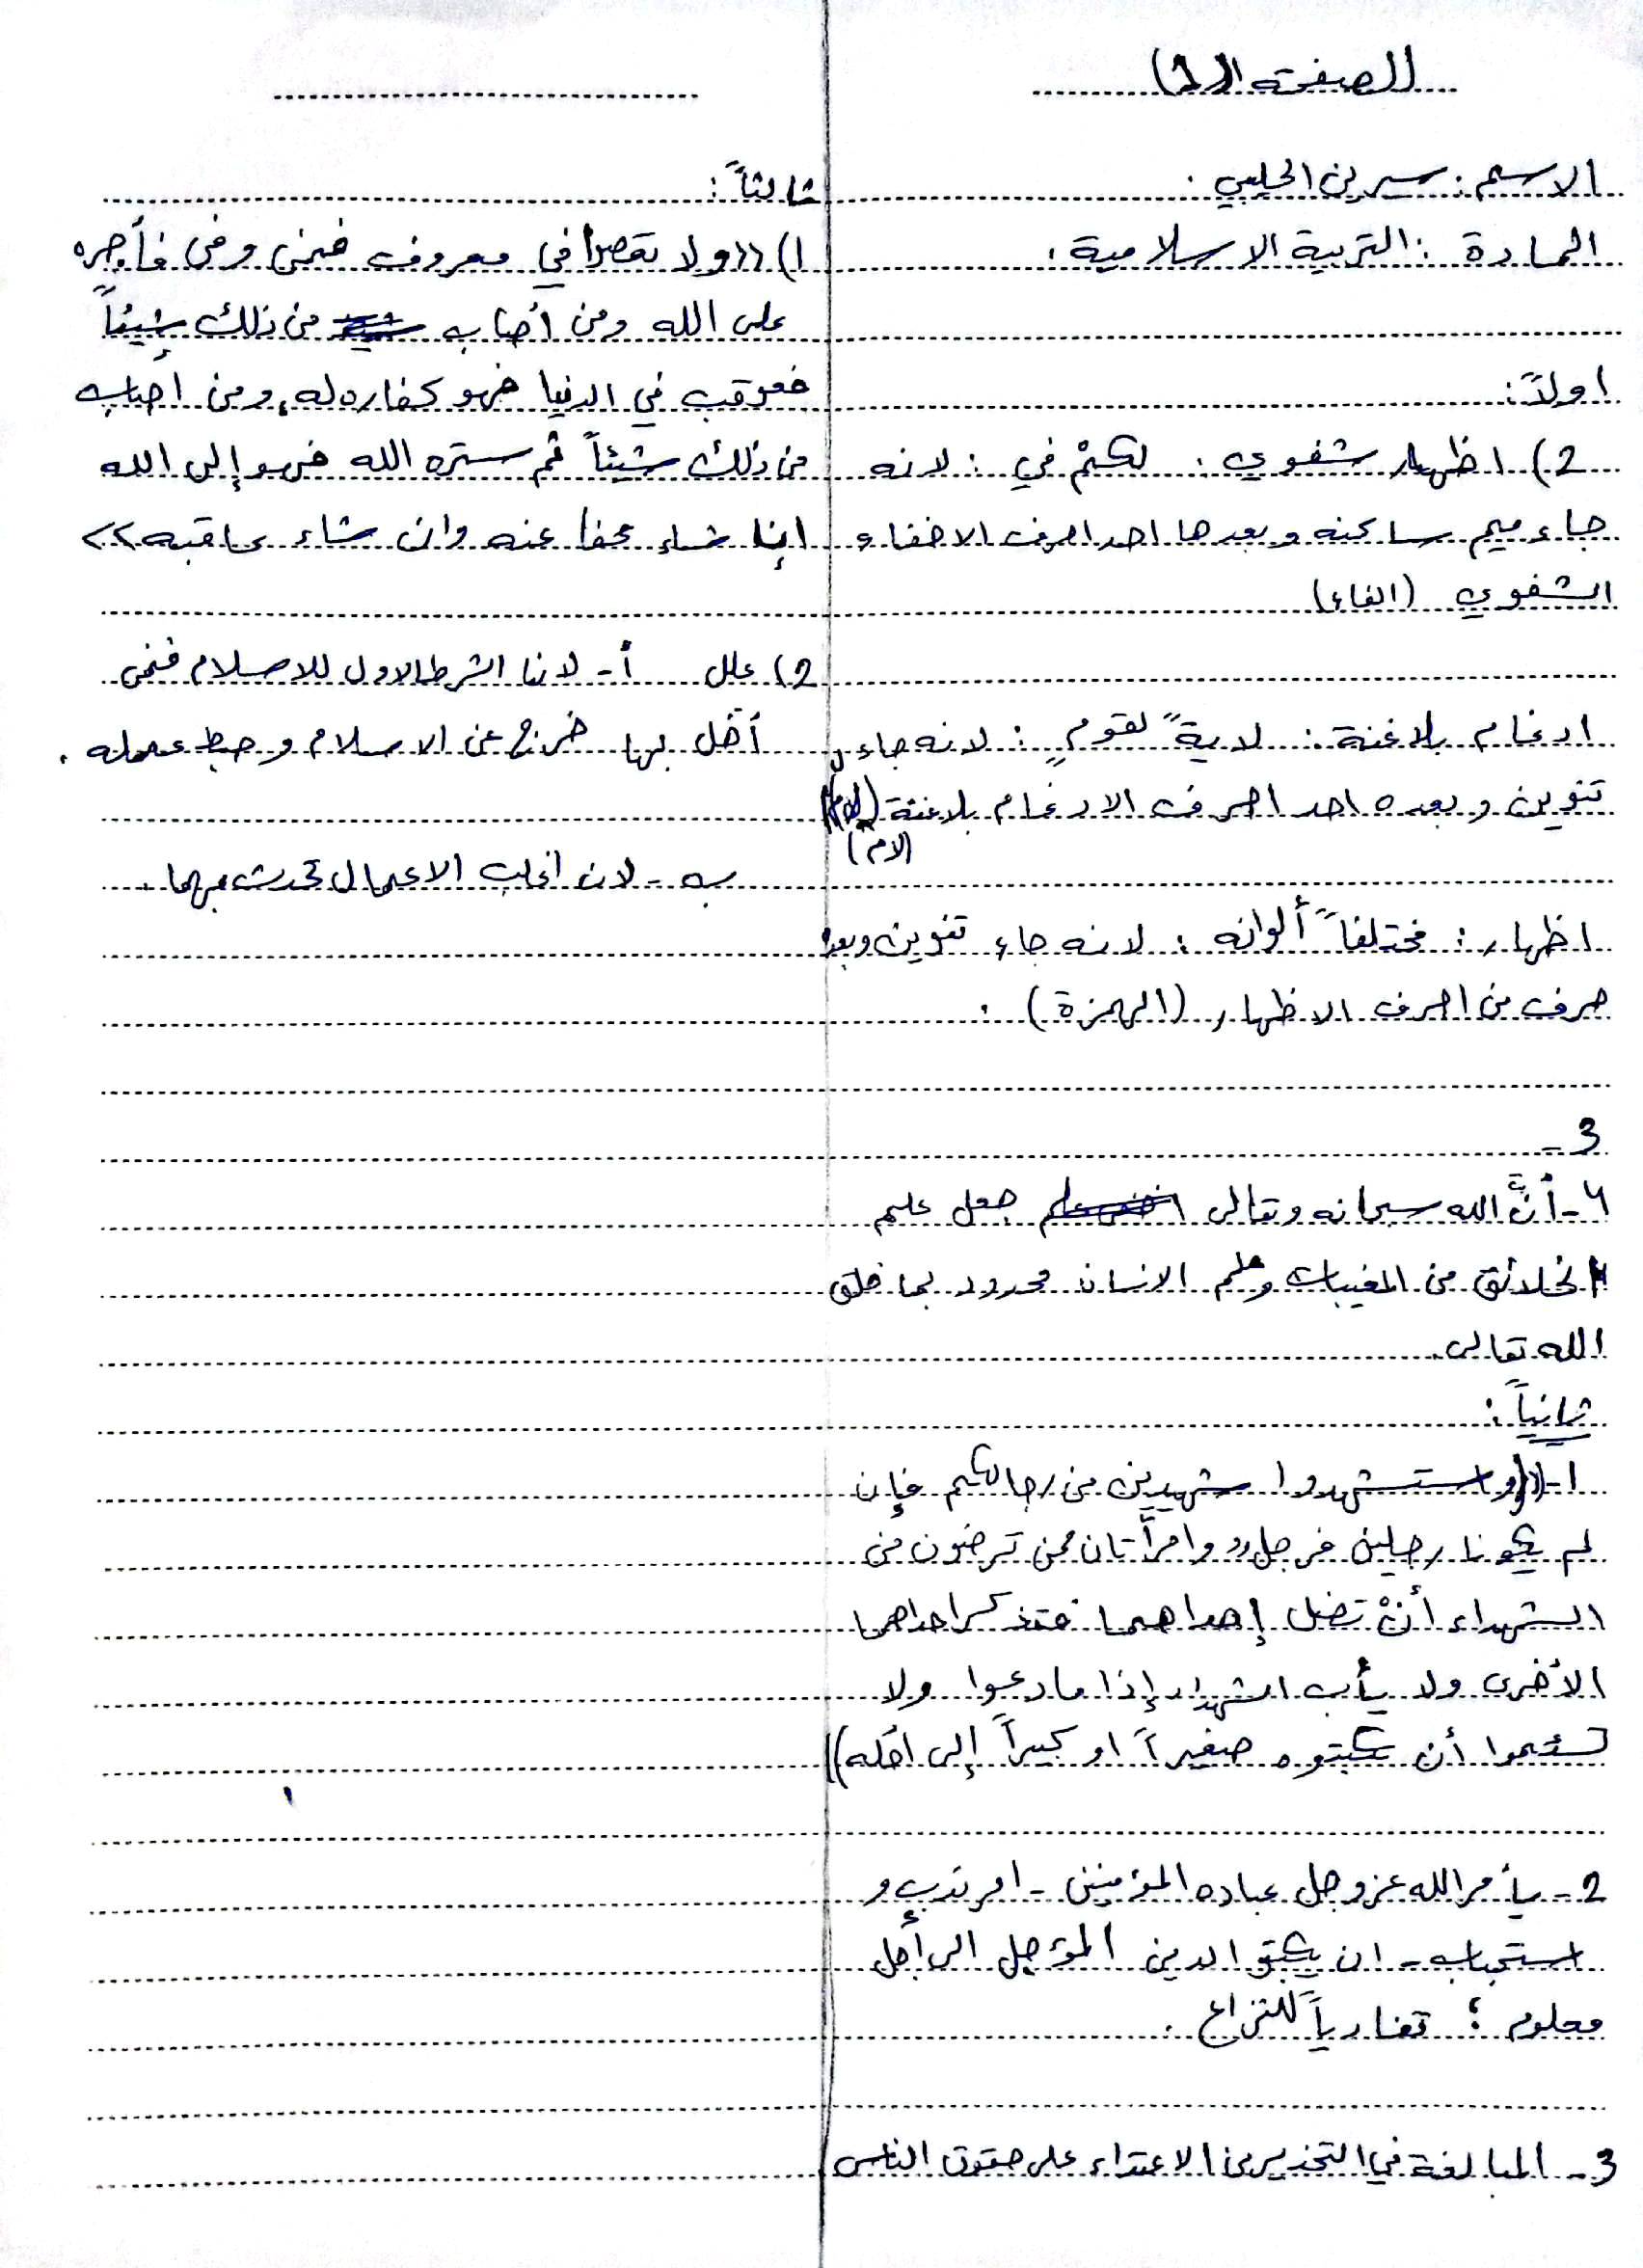 الصفحة (1)
الاسم: سيرين الحلبي.
المادة: التربية الاسلامية.
اولاً:
2) اظهار شفوي: لكمْ في: لانه
جاء ميم ساكنه وبعدها احد احرف الاخفاء
الشفوي (الفاء)
ادغام بلا غنة: لايةً لقومٍ: لانه جاء
تنوين وبعده احد احرف الادغام بلا غنة
(لام)
اظهار: مختلفاً ألوانه: لانه جاء تنوين وبعد
حرف من احرف الاظهار (الهمزة).
3-
4- أنَّ الله سبحانه وتعالى جعل علم
الخلائق من المغيبات وعلم الانسان محدود بما خلق
الله تعالى.
ثانياً:
1- ((واستشهدوا شهيدين من رجالكم فإن
لم يكونا رجلين فرجل وامرأتان ممن ترضون من
الشهداء أنْ تضل إحداهما فتذكر احداهما
الأخرى ولا يأب الشهداء إذا ما دعوا ولا
تسئموا أن تكتبوه صغيراً او كبيراً إلى أجله))
2- يأمر الله عز وجل عباده المؤمنين - امر ندب و
استحباب - ان يكتبو الدين المؤجل الى أجل
معلوم؛ تفادياً للنزاع.
3- المبالغة في التحذير من الاعتداء على حقوق الناس
ثالثاً:
1) ((ولا تعصوا في معروف فمن وفى فأجره
على الله ومن أصاب من ذلك شيئاً
فعوقب في الدنيا فهو كفاره له، ومن اصاب
من ذلك شيئاً ثم ستره الله فهو إلى الله
إن شاء عفا عنه وان شاء عاقبه>>
2) علل أ- لانها الشرط الاول للاسلام فمن
أخل بها خرج عن الاسلام وحبط عمله.
ب- لان اغلب الاعمال تحدث بهما.